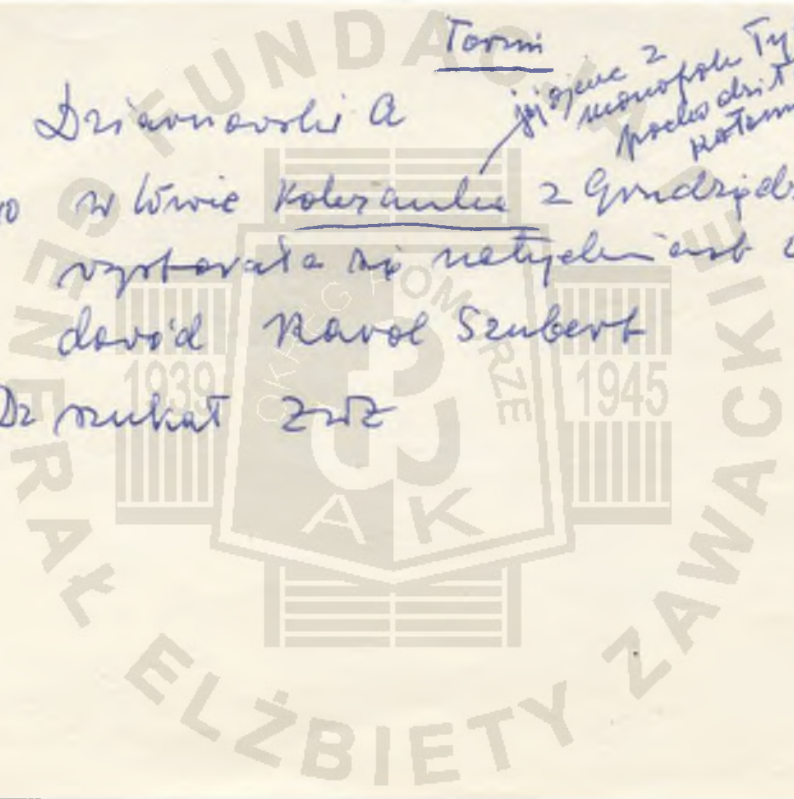 Toruń
jej ojciec z
monopolu Ty
pochodził
Dziarnowski A
w Lwowie Koleżanka z Grudziądz
wystarała się natychmiast
dowód Karol Szubert
Dz szukał ZWZ
FUNDACJA
GENERAŁ ELŻBIETY ZAWACKIEJ
OKRĘG POMORZE
1939
1945
AK